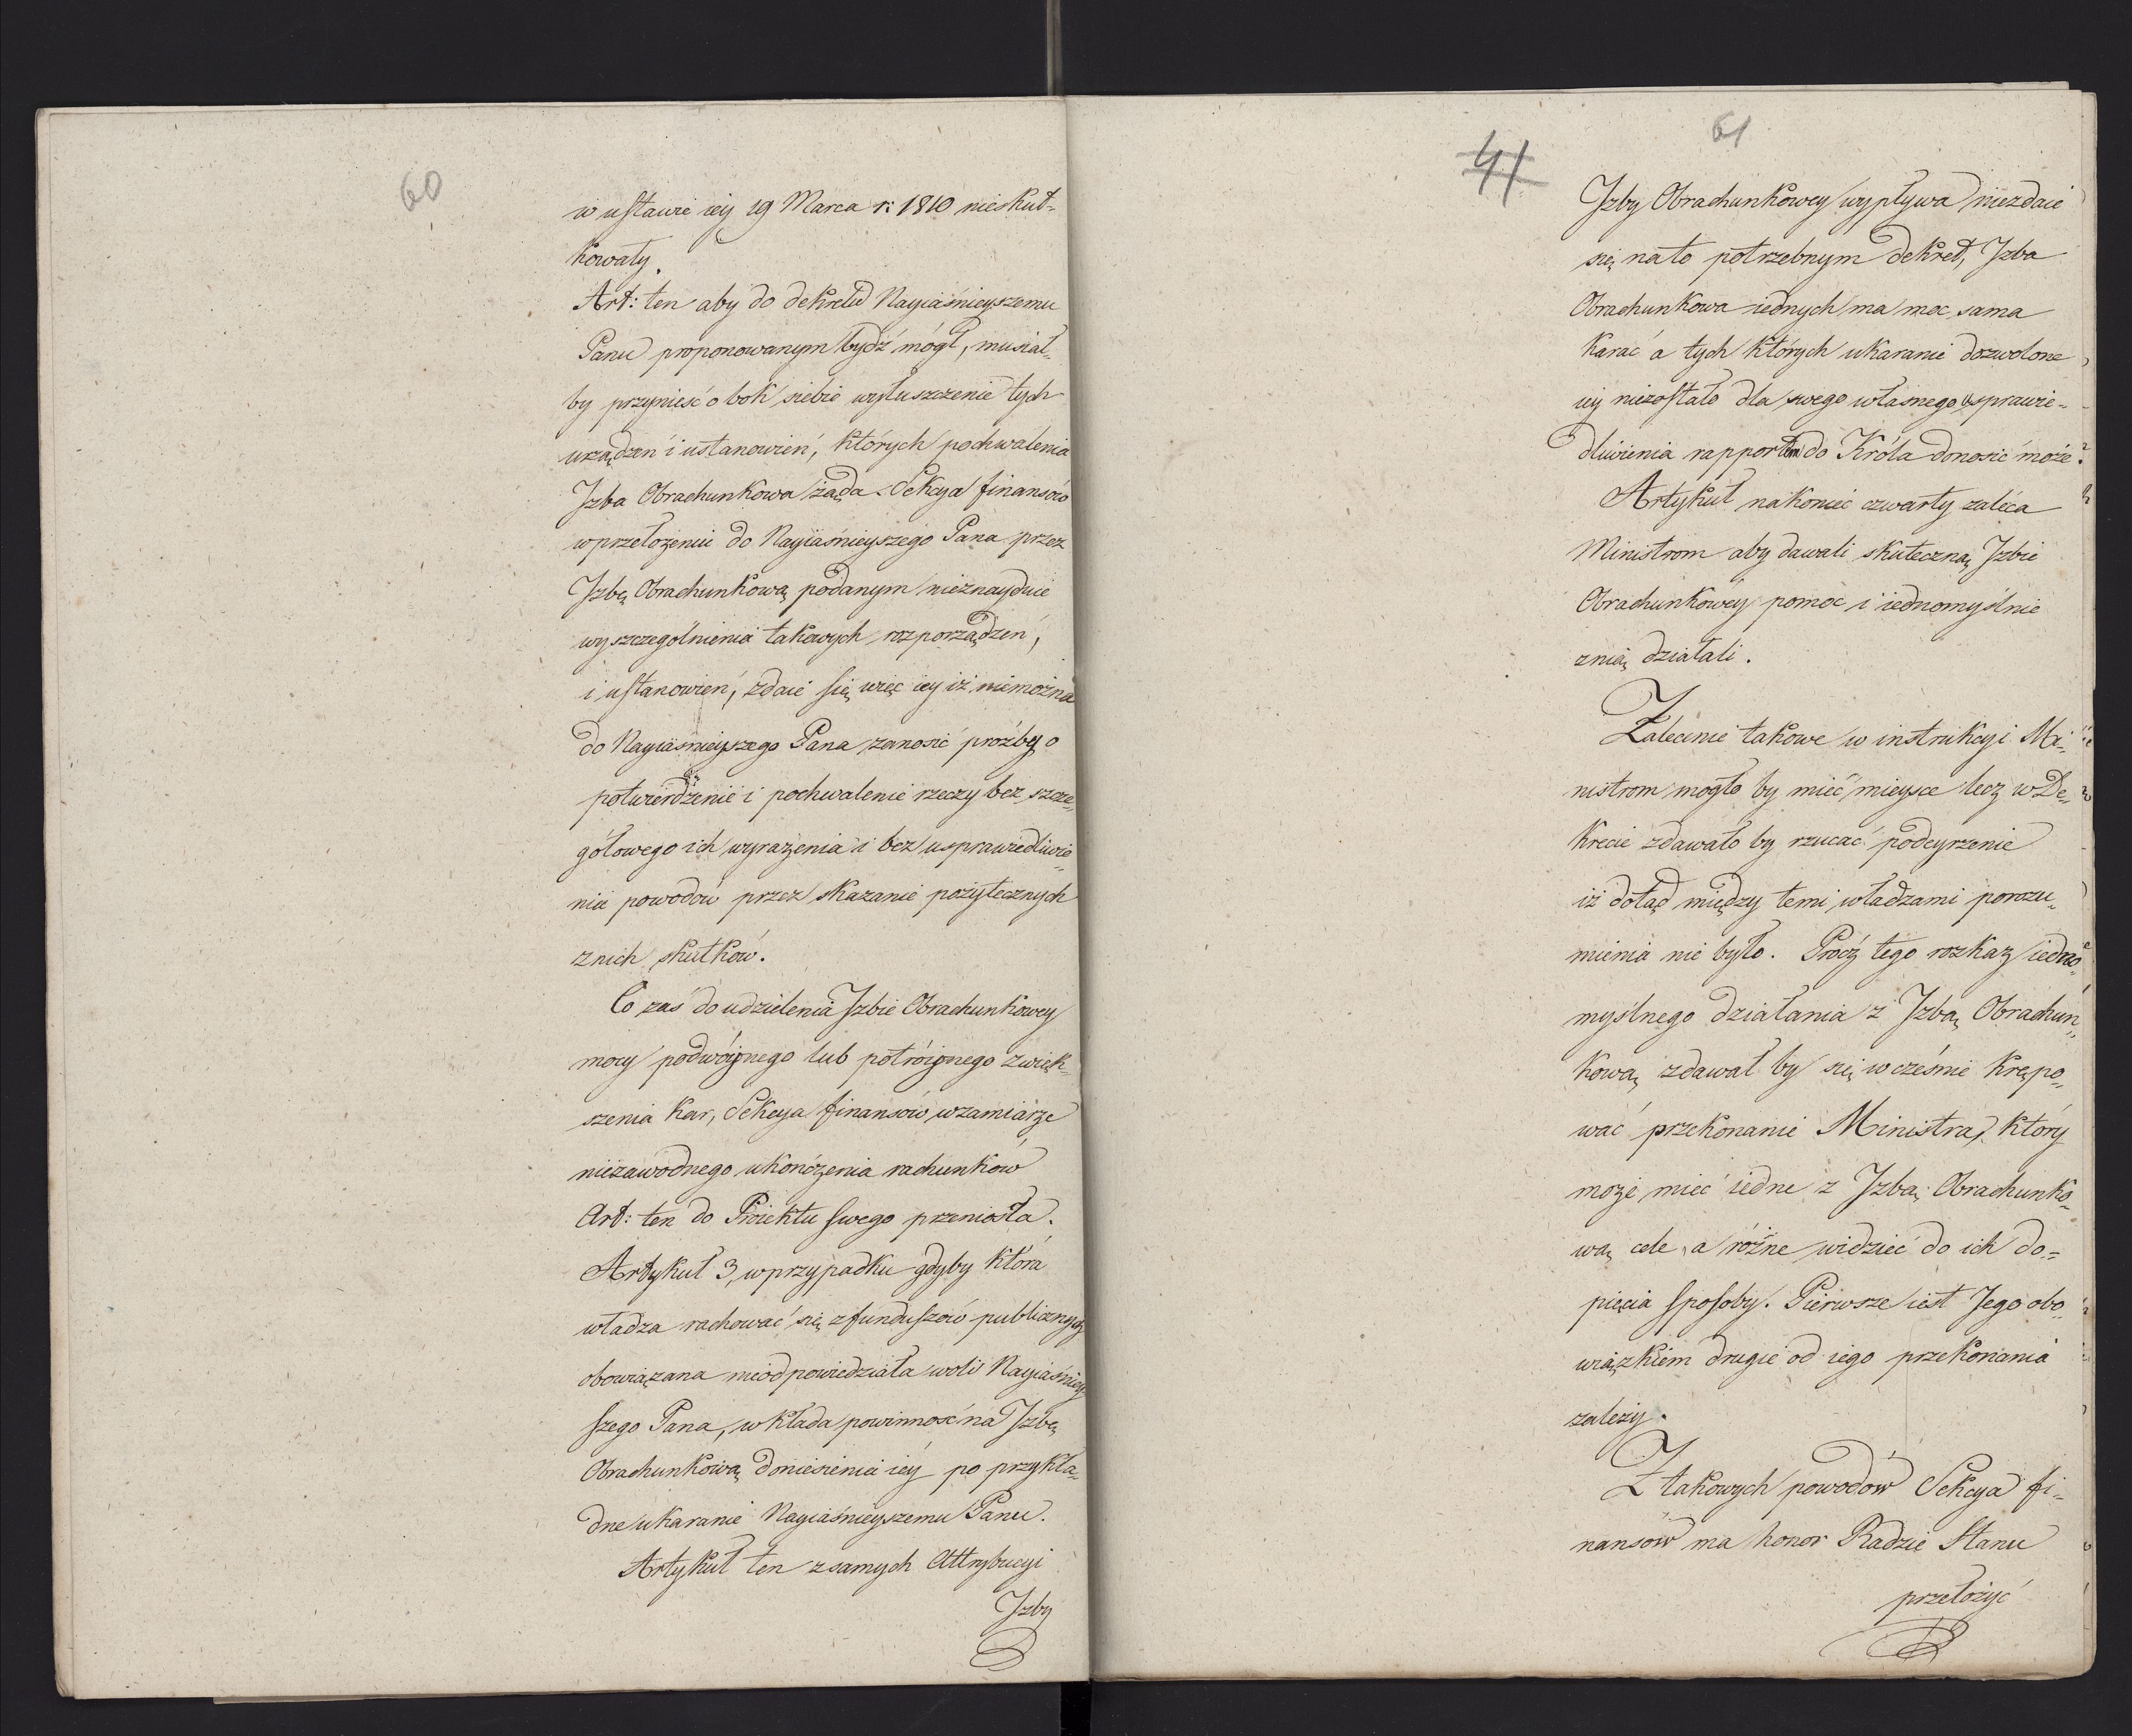 60
w ustawie iey 19 Marca r: 1810 nieskut-
kowały.
Art: ten aby do dekretu Nayiaśnieyszemu
Panu proponowanym bydź mógł, musiał-
by przynieść obok siebie wyłuszczenie tych
urządzeń i ustanowień, których pochwalenia
Izba Obrachunkowa żąda. Sekcya finansów
w przełożeniu do Nayiaśnieyszego Pana przez
Izbę Obrachunkową podanym nieznayduie
wyszczególnienia takowych rozporządzeń,
i ustanowień, zdaie się więc iey iż niemożna
do Nayiaśnieyszego Pana zanosić proźby o
potwierdzenie i pochwalenie rzeczy bez szcze-
gółowego ich wyrażenia i bez usprawiedliwie-
nia powodów przez skazanie pożytecznych
znich skutków.
Co zaś do udzielenia Izbie Obrachunkowey
mocy podwóynego lub potróynego zwięk-
szenia kar, Sekcya finansów w zamiarze
niezawodnego ukończenia rachunków
Art: ten do Proiektu swego przeniosła.
Artykuł 3, w przypadku gdyby która
władza rachować się z funduszów publicznych
obowiązana nieodpowiedziała woli Nayiaśniey-
szego Pana, wkłada powinność na Izbę
Obrachunkową doniesienia iey po przykła-
dne ukaranie Nayiaśnieyszemu Panu.
Artykuł ten z samych Attrybucyi
Izby
41
61
Izby Obrachunkowey wypływa niezdaie
się nato potrzebnym dekret, Izba
Obrachunkowa iednych ma moc sama
karać a tych których ukaranie dozwolone
iey niezostało dla swego własnego usprawie-
dliwienia rapportem do Króla donosić może.
Artykuł nakoniec czwarty zaleca
Ministrom aby dawali skuteczną Izbie
Obrachunkowey pomoc i iednomyślnie
znią działali.
Zalecenie takowe w instrukcyi Mi-
nistrom mogło by mieć mieysce lecz w De-
krecie zdawało by rzucać podeyrzenie
iż dotąd między temi władzami porozu-
mienia nie było. Prócz tego rozkaz iedno-
myślnego działania z Izbą Obrachun-
kową zdawał by się wcześnie krępo-
wać przekonanie Ministra, który
może mieć iedne z Izbą Obrachunko-
wą cele, a różne widzieć do ich do-
pięcia sposoby. Pierwsze iest Jego obo-
wiązkiem drugie od iego przekonania
zależy.
Z takowych powodów Sekcya fi-
nansów ma honor Radzie Stanu
przełożyć